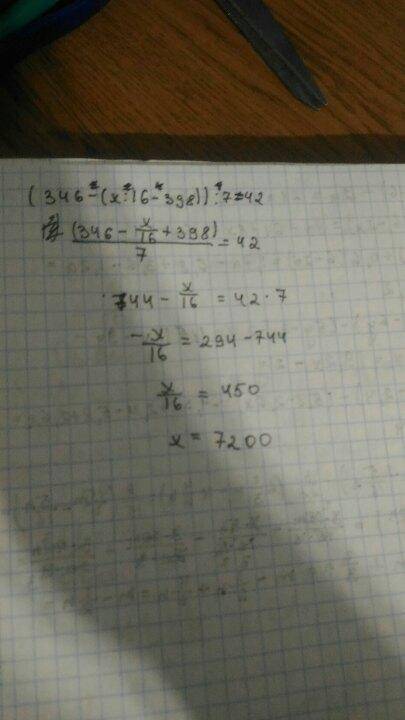 (346-(x:16-398)):7=42
(346 - x/16 + 398)/7 = 42
744 - x/16 = 42·7
- x/16 = 294-744
x/16 = 450
x = 7200